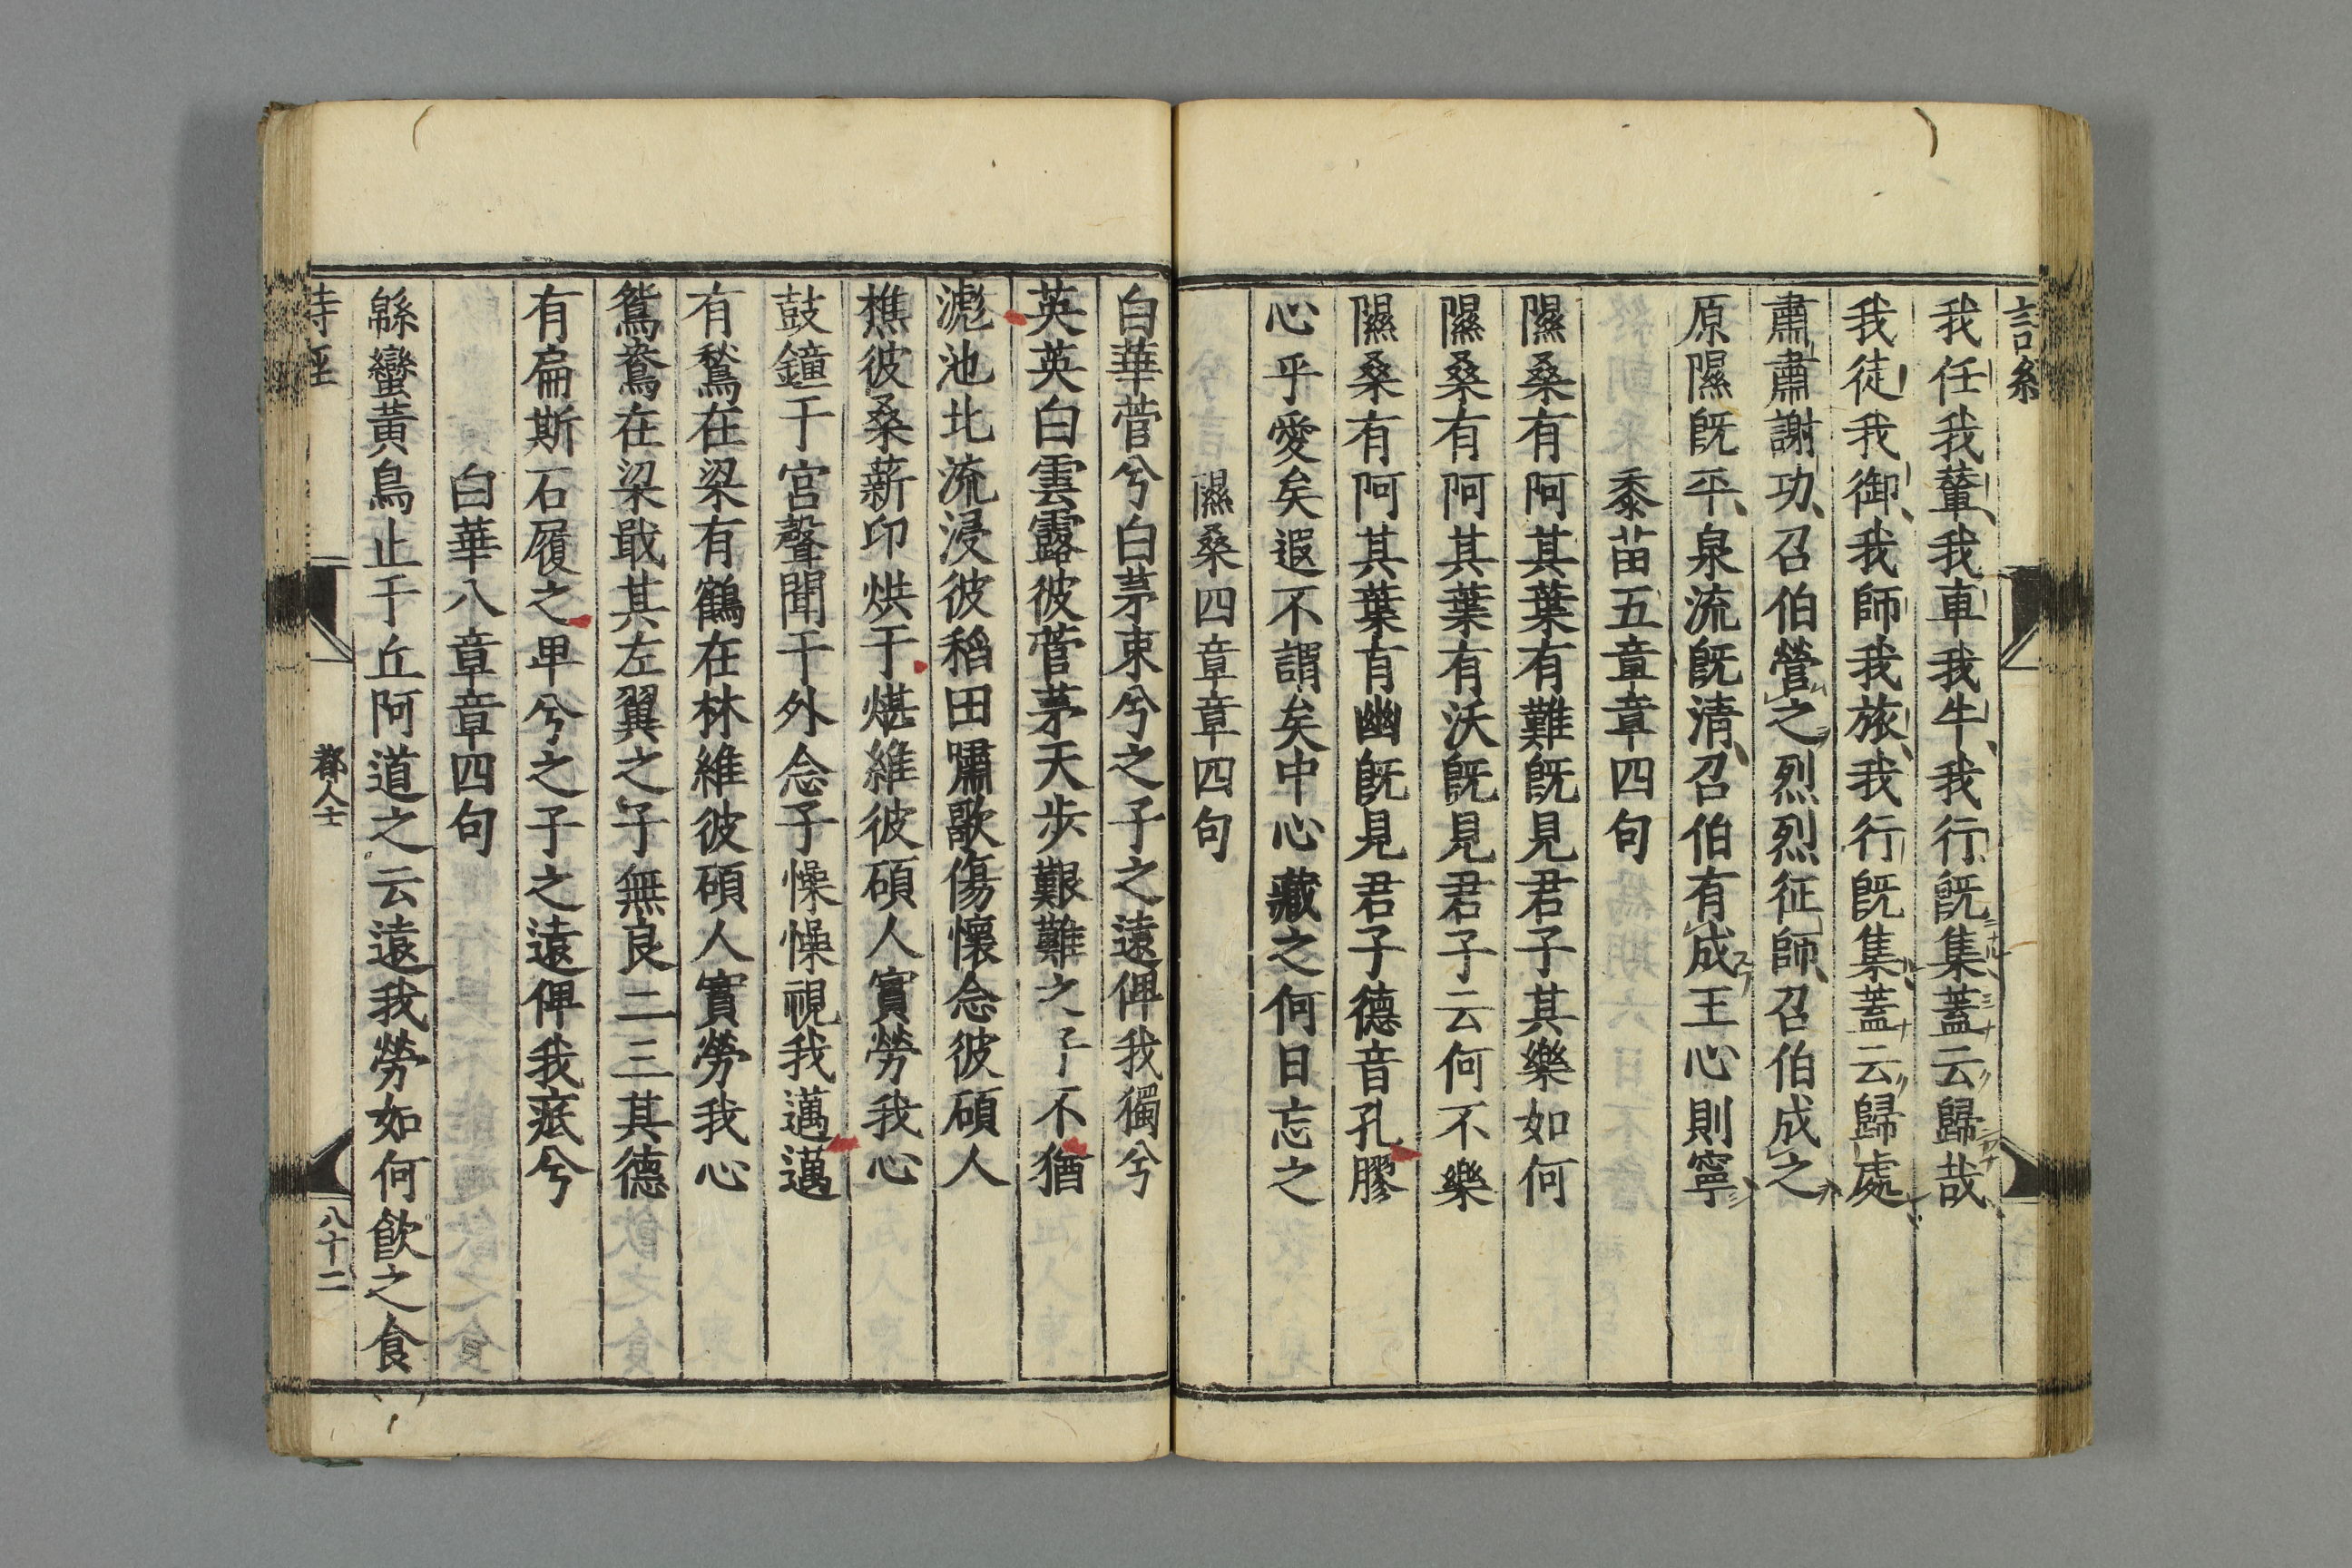 我任我輦我車我牛我行既集蓋云歸哉
我徒我御我師我旅我行既集蓋云歸處
肅肅謝功召伯營之烈烈征師召伯成之
原隰既平泉流既清召伯有成王心則寧
黍苗五章章四句
隰桑有阿其葉有難既見君子其樂如何
隰桑有阿其葉有沃既見君子云何不樂
隰桑有阿其葉有幽既見君子德音孔膠
心乎愛矣遐不謂矣中心藏之何日忘之
隰桑四章章四句
白華菅兮白茅束兮之子之遠俾我獨兮
英英白雲露彼菅茅天步艱難之子不猶
滮池北流浸彼稻田嘯歌傷懷念彼碩人
樵彼桑薪卬烘于煁維彼碩人實勞我心
鼓鐘于宮聲聞于外念子懆懆視我邁邁
有鶖在梁有鶴在林維彼碩人實勞我心
鴛鴦在梁戢其左翼之子無良二三其德
有扁斯石履之卑兮之子之遠俾我疧兮
白華八章章四句
緜蠻黃鳥止于丘阿道之云遠我勞如何飲之食
詩經
都人士
八十二